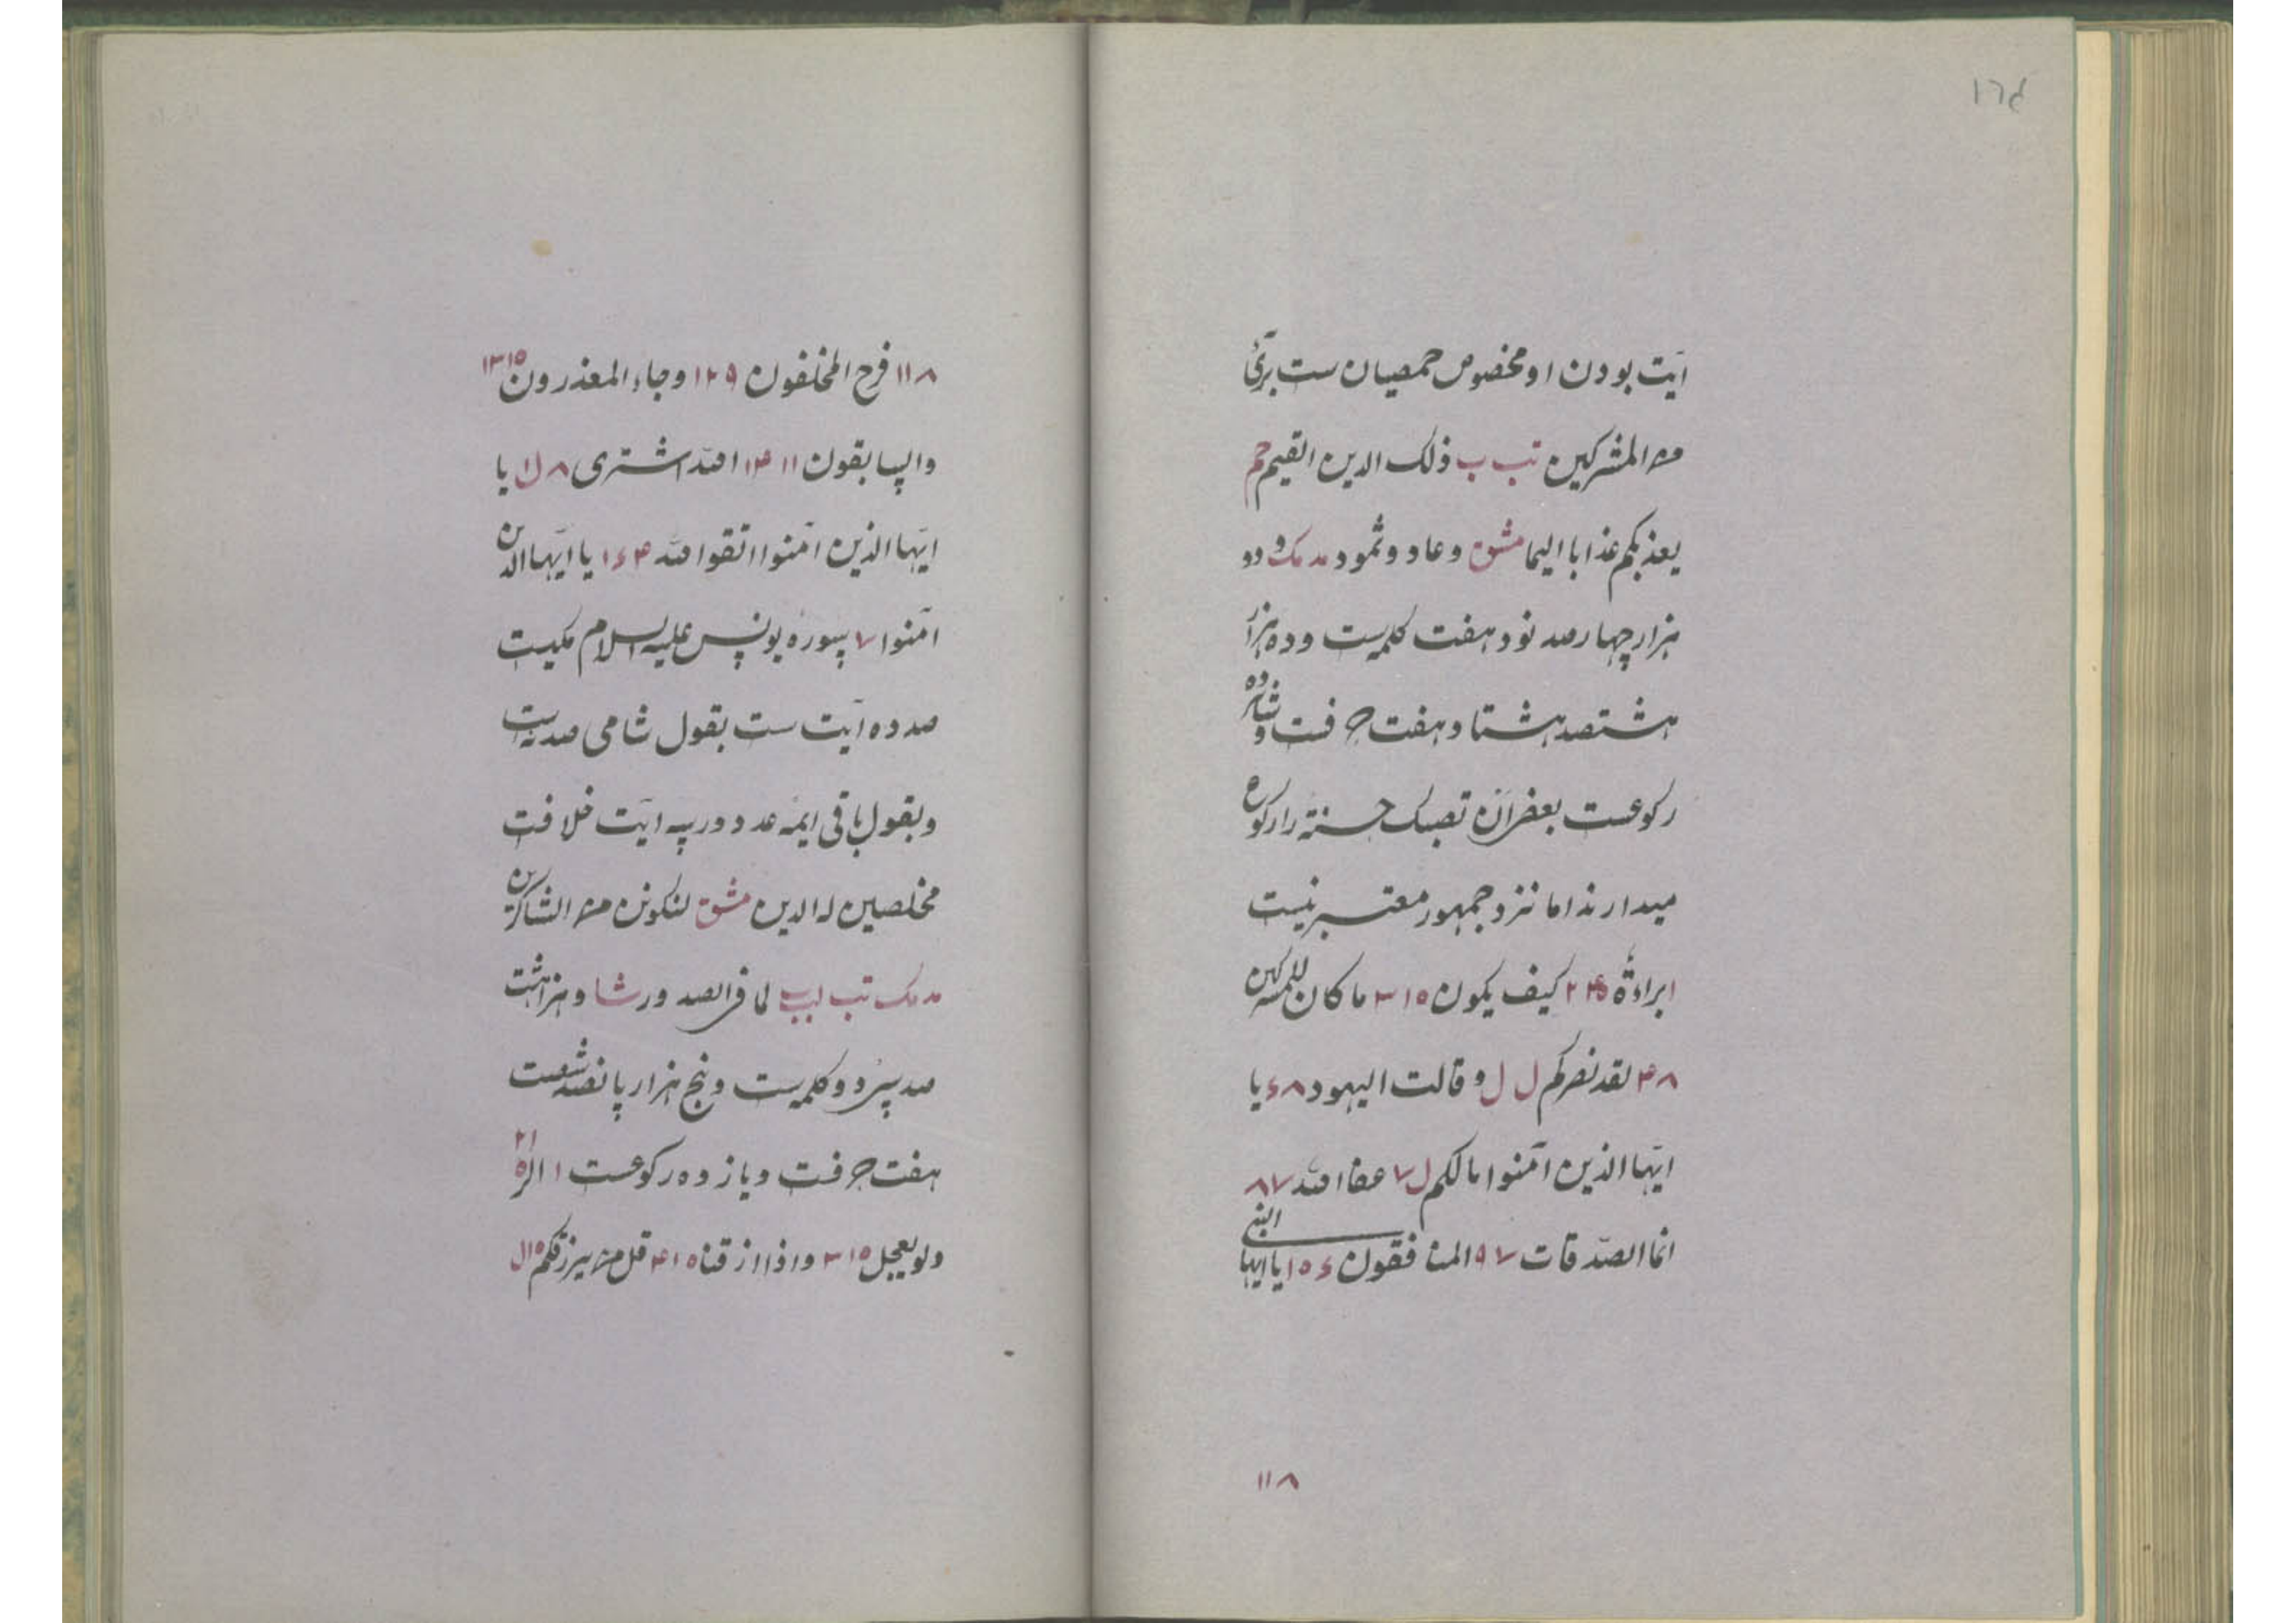 ١٦٤
آیت بودن او مخصوص حمصیان ست بریٔ
من المشرکین تب ب ذلک الدین القیم حم
یعذبکم عذابا الیما مشق و عاد و ثمود مد مک و دو
هزار چهارصد نود هفت کلمه‌ست و ده هزار
هشتصد هشتاد و هفت حرفست و شانزده
رکوعست بعضی ان تصبک حسنة را رکوع
میدارند اما نزد جمهور معتبر نیست
ا براءة کیف یکون ۳۱۵ ما کان للمشرکین
۴۸ لقد نصرکم ل ل و قالت الیهود ۶۸ یا
ایّها الذین آمنوا مالکم ل۷ عفا الله ۸۷
انما الصّدقات ۹۷ المنافقون ۱۵۶ یا ایها النبی
۱۱۸
۱۱۸ فرح المخلفون ۱۲۹ و جاء المعذرون ۱۳۱۵
والسابقون ۱۴۱۱ ان الله اشتری ۸ یا
ایّها الذین آمنوا اتقوا الله ۱۶۴ یا ایّها الذین
آمنوا ۷ سوره یونس علیه السلام مکیست
صد و ده آیت ست بقول شامی صد نه ست
و بقول باقی ایمه عدد در سه آیت خلافست
مخلصین له الدین مشق لنکونن من الشاکرین
مد مک تب لبب لما فی الصدور شا و هزار هشت
صد سی و دو کلمه‌ست و پنج هزار پانصد شصت
هفت حرفست و یازده رکوعست ۱ الر ۲۱۵
و لو یعجل ۳۱۵ و اذا اذقنا ۴۱۵ قل من یرزقکم ۱۵ل